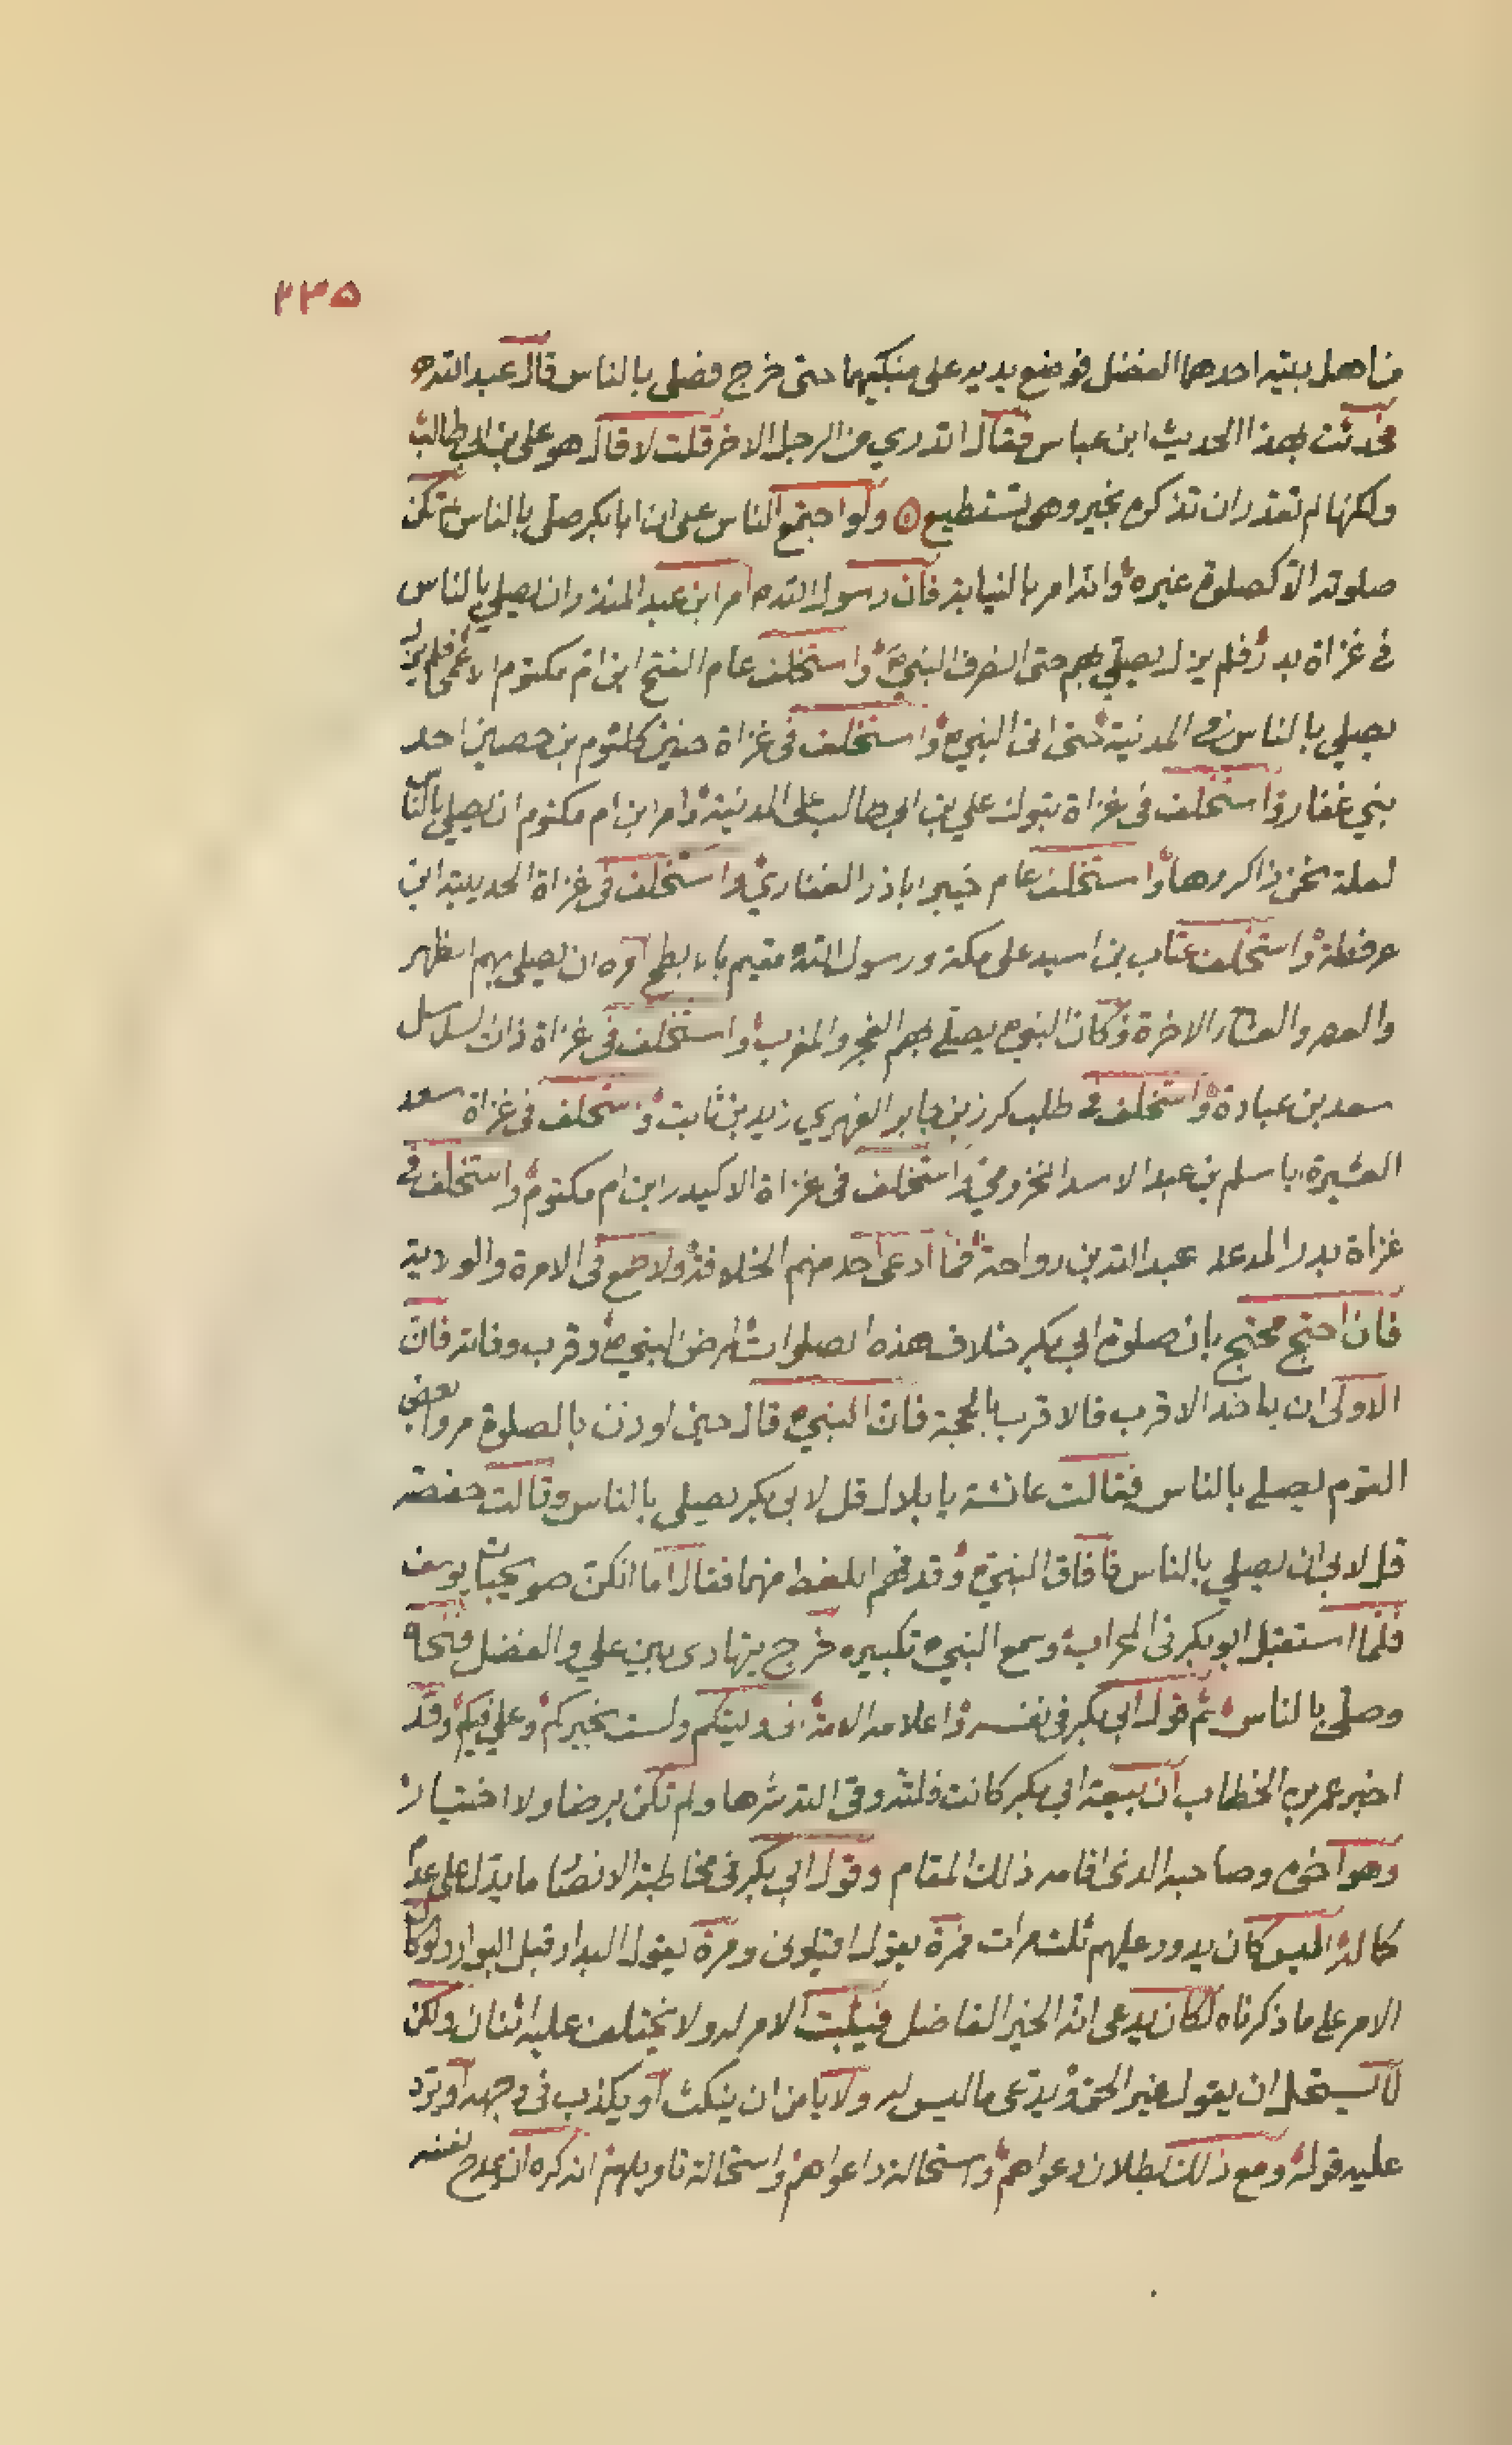 ٢٣٥
من اهل بيته احدهما الفضل فوضع يديه على منكبيهما حتى خرج فصلى بالناس قال عبد الله
فحدثت بهذا الحديث ابن عباس فقال اتدري من الرجل الاخر قلت لا قال هو على بن ابي طالب
ولكنها لم تقدر ان تذكره بخير وهى تستطيع ولو اجتمع الناس على ان ابا بكر صلى بالناس لم تكن
صلوته الا كصلوة غيره وانه امر بالنيابة فان رسول الله امر ابن عبد المنذر ان يصلي بالناس
في غزاة بدر فلم يزل يصلي بهم حتى انصرف النبي واستخلف عام الفتح ابن ام مكتوم الاعمى فلم يزل
يصلي بالناس في المدينة حتى اتى النبي واستخلف فى غزاة حنين كلثوم بن حصين احد
بني غفار واستخلف فى غزاة تبوك علي بن ابي طالب على المدينة وامر ابن ام مكتوم ان يصلي بالناس
لعلة نحن ذاكروها واستخلف عام خيبر اباذر الغفاري واستخلف فى غزاة الحديبية ابن
عرفطة واستخلف عتاب بن اسيد على مكة ورسول الله مقيم بالابطح امره ان يصلي بهم الظهر
والعصر والعشاء الاخرة وكان النبي يصلي بهم الفجر والمغرب واستخلف فى غزاة ذات السلاسل
سعد بن عبادة واستخلف في طلب كرز بن جابر الفهري زيد بن ثابت واستخلف فى غزاة سعد
العشيرة ابا سلم بن عبد الاسد المخزومي واستخلف فى غزاة الاكيدر ابن ام مكتوم واستخلف في
غزاة بدر الموعد عبد الله بن رواحة فما ادعى احد منهم الخلافة ولا طمع فى الامرة والولاية
فان احتج محتج بان صلوة ابي بكر خلاف هذه الصلوات لمرض النبي وقرب وفاته فان
الاولى ان ياخذ الاقرب فالاقرب بالحجة فان النبي قال حين اوذن بالصلوة مروا بعض
القوم يصلى بالناس فقالت عائشة يا بلال قل لابى بكر يصلي بالناس وقالت حفصة
قل لابى ان يصلي بالناس فافاق النبي وقد فهم اللغط منهما فقال اما انكن صويحبات يوسف
فلما استقبل ابو بكر فى المحراب وسمع النبي تكبيره خرج يتهادى بين علي والفضل فنحاه
وصلى بالناس ثم قول ابي بكر فى نفسه واعلامه الامة انى وليتكم ولست بخيركم وعلي فيكم وقد
اخبر عمر بن الخطاب ان بيعة ابي بكر كانت فلتة وقى الله شرها ولم تكن برضا ولا اختيار
وهو اخوه وصاحبه الذى اقامه ذلك المقام وقول ابي بكر فى مخاطبة الانصار ما يدل على عدم
كماله اليس كان يدور عليهم ثلث مرات فمرة يقول اقيلونى ومرة يقول البدار قبل البوار ولو كان
الامر على ما ذكرناه لكان يدعى انه الخير الفاضل فيثبت الامر له ولا يختلف عليه اثنان ولكن
لا يستحل ان يقول غير الحق ويدعى ما ليس له ولا يامن ان ينكث او يكذب فى وجهه او يرد
عليه قوله ومع ذلك بطلان دعواهم واستحالة دعواهم واستحالة تاويلهم انه كره ان يمدح نفسه